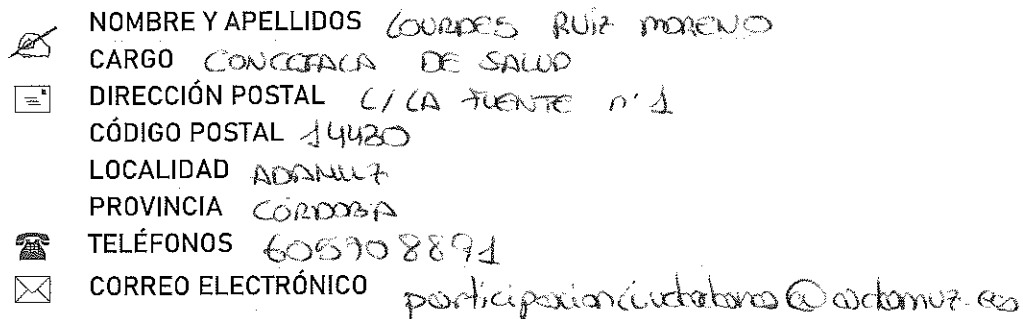 NOMBRE Y APELLIDOS LOURDES RUIZ MORENO
CARGO CONCEJALA DE SALUD
DIRECCIÓN POSTAL C/ LA FUENTE nº 1
CÓDIGO POSTAL 14430
LOCALIDAD ADAMUZ
PROVINCIA CÓRDOBA
TELÉFONOS 605908891
CORREO ELECTRÓNICO participacionciudadana@adamuz.es